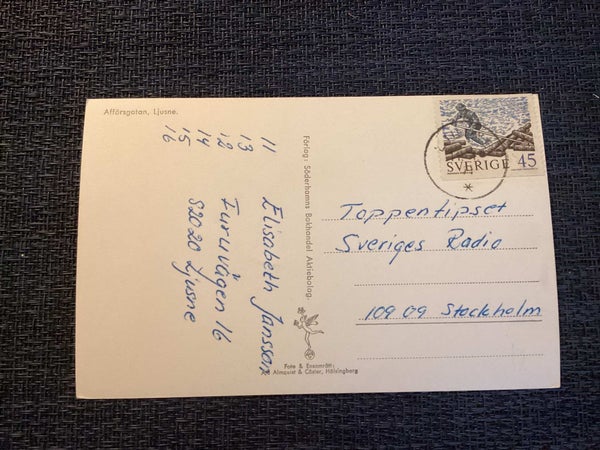 Affärsgatan, Ljusne.
11
13
12
14
15
16
Elisabeth Jansson
Furuvägen 16
82020 Ljusne
Förlag: Söderhamns Bokhandel Aktiebolag.
Foto & Ensamrätt:
Almquist & Cöster, Hälsingborg
SVERIGE 45
Toppentipset
Sveriges Radio
109 09 Stockholm